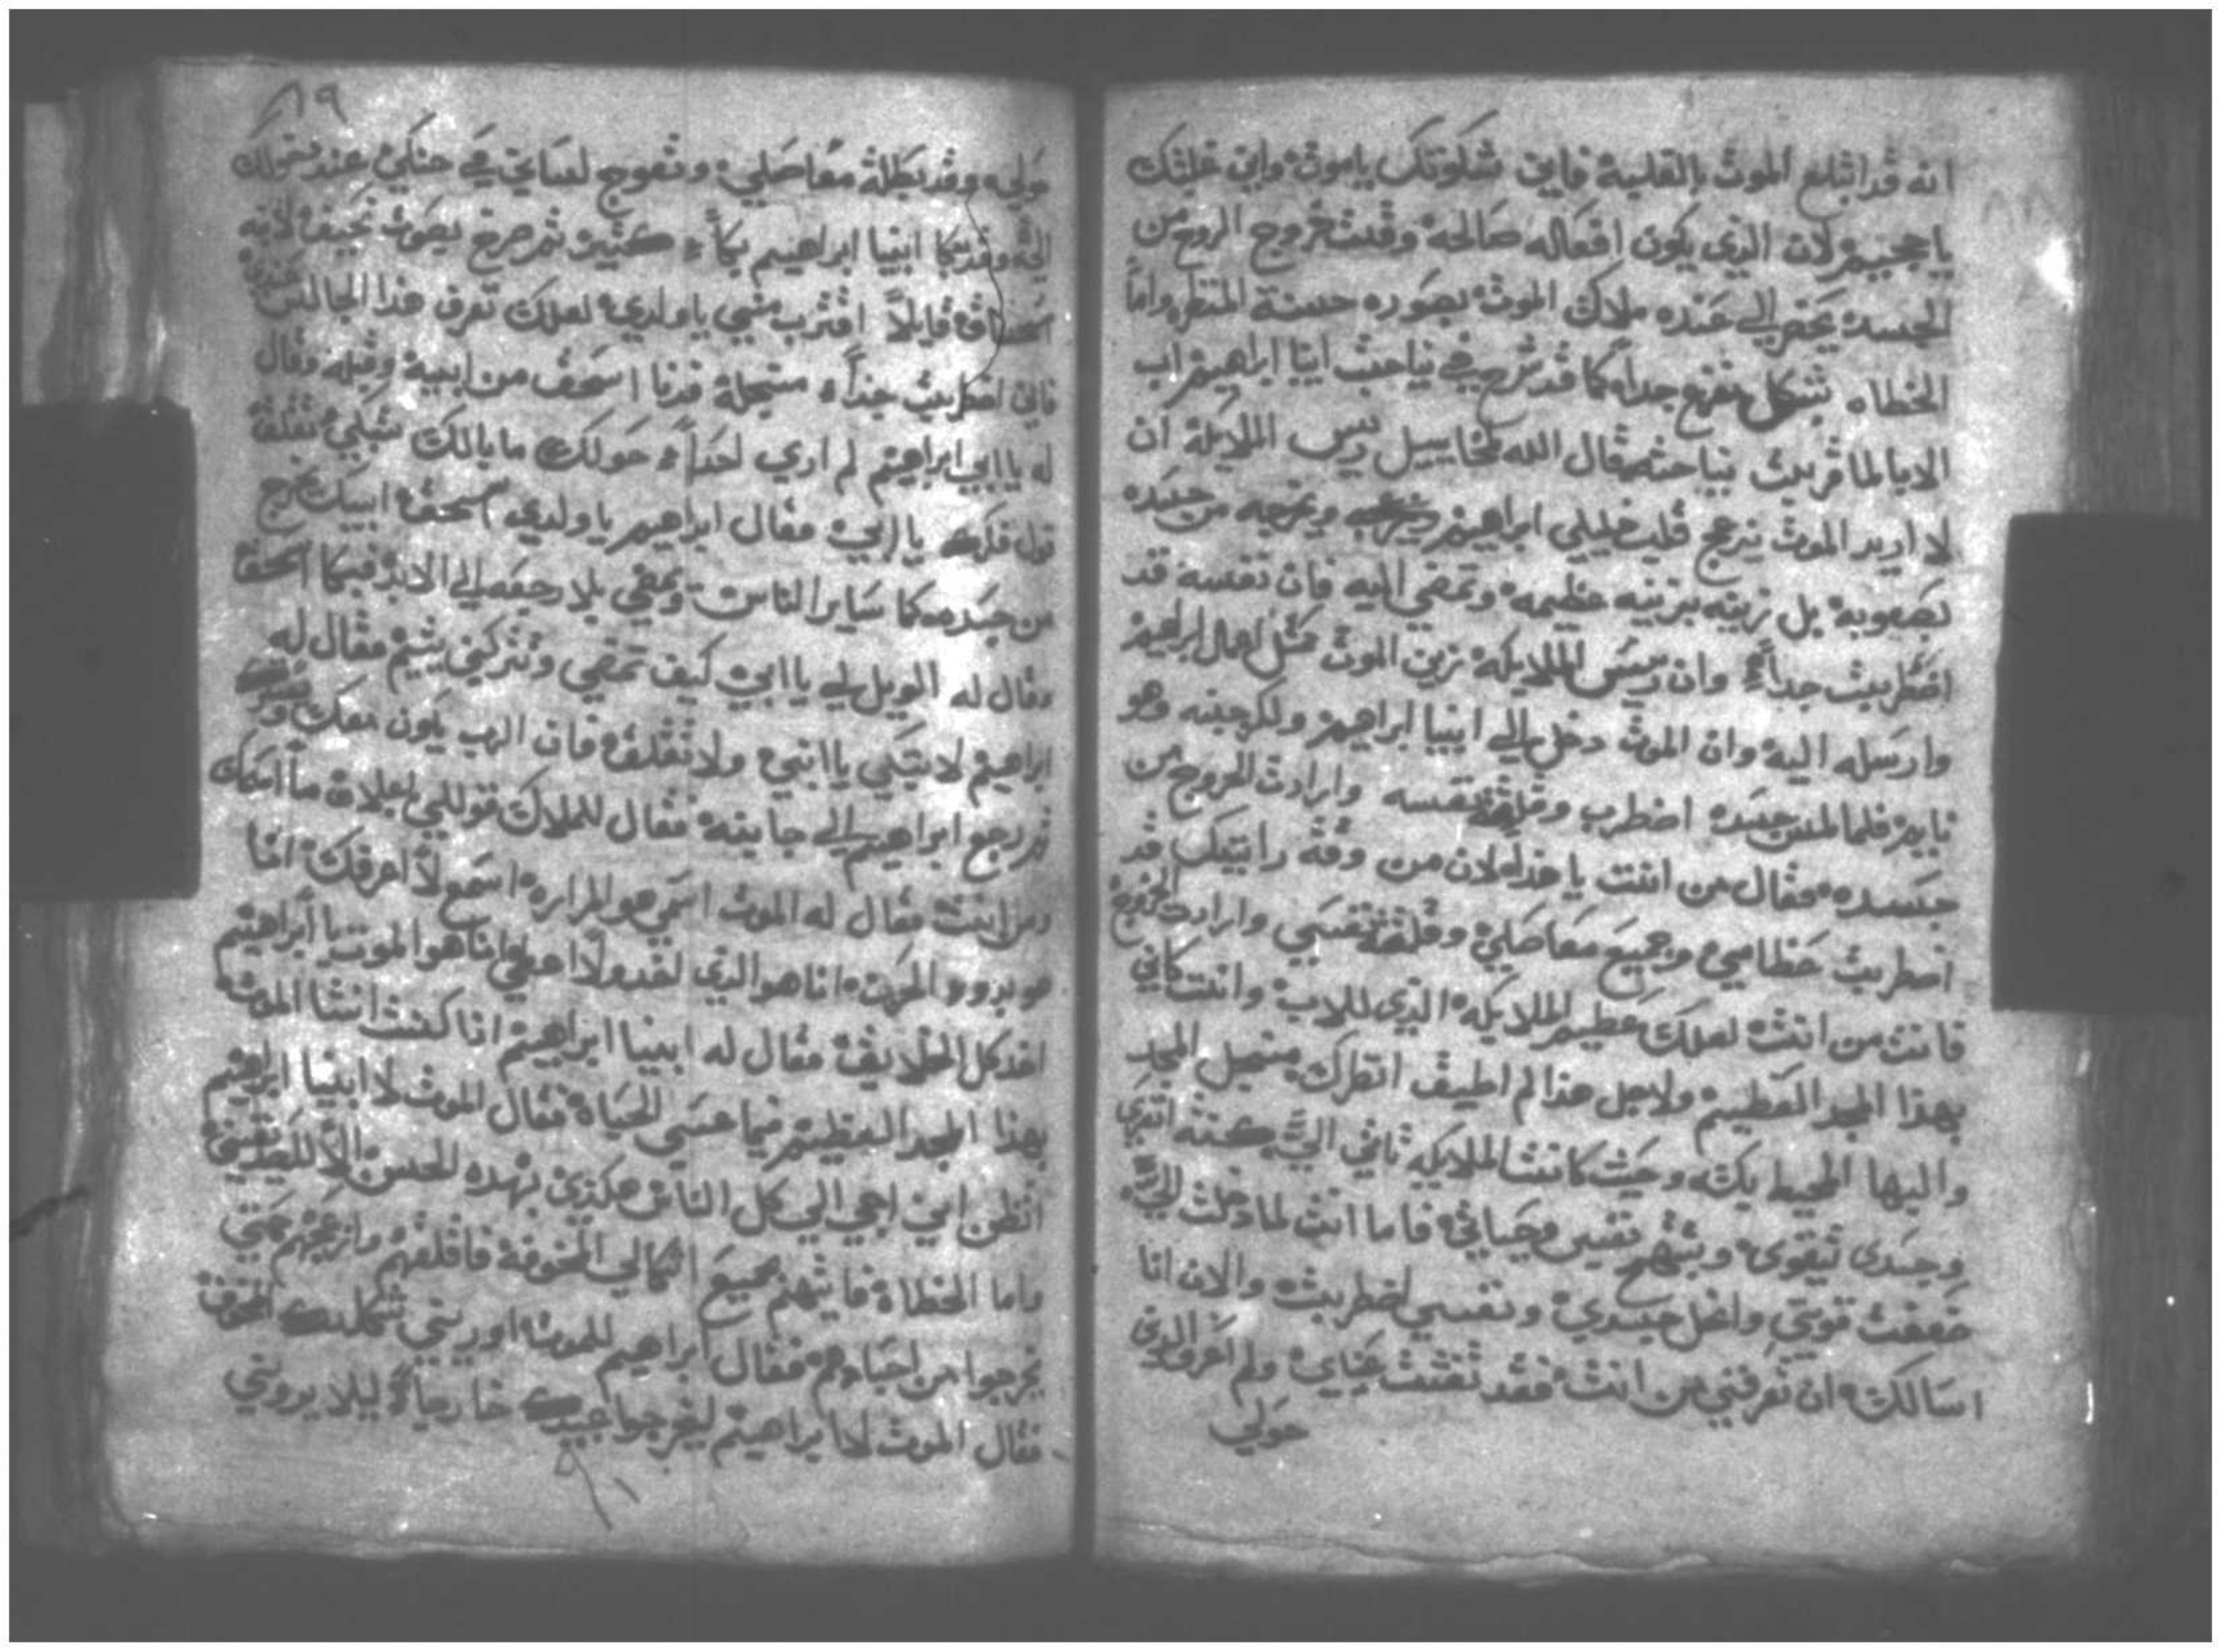 انه قد ابتلع الموت بالغلبة فاين شكوتك ياموت واين غلبتك
يا جحيم لان الذي يكون افعاله صالحة وقت خروج الروح من
الجسد يحضر الي عنده ملاك الموت بصوره حسنة المنظر واما
الخطاه بشكل مفزع جداً كما قد شرح في نياحت ابنا ابراهيم اب
الابا لما قربت نياحته قال الله لمخاييل ريس الملايكة ان
لا اريد الموت يزعج قلب خليلي ابراهيم ويخرجه من جسده
بصعوبه بل زينه بزينه عظيمه وتمضي اليه فان نفسه قد
اضطربت جداً وان ريس الملايكة زين الموت مثل اعمال ابراهيم
وارسله اليه وان الموت دخل الي ابينا ابراهيم ولكن جينه وهو
نايم فلما لمس جسده اضطرب وقلقة نفسه وارادت الخروج من
جسده فقال من انت يا هذا لان من وقة رايتك قد
اضطربت عظامي وجميع مفاصلي وقلقة نفسي وارادت الخروج
فانت من انت لعلك عظيم الملايكه الذي للاب وانت كاني
بهذا المجد العظيم ولاجل هذا لم اطيق انظرك من جيل المجد
والبها المحيط بك وحيث كانت الملايكه تاتي الي كنت اتعزي
وجسدي يتقوي ويبتهج نفسي وحياتي فاما انت لما دخلت الي
ضعفت قوتي وانحل جسدي ونفسي اضطربت والان انا
اسالك ان تعرفني من انت فقد ثقلت عيناي ولم اعرف الذي
حولي
٨٩
حولي وقد بطلة مفاصلي وتعوج لساني في حنكي عند دخولك
الي وقد بكا ابينا ابراهيم بكاً كثير ثم صرخ بصوت نحيف لابنه
اسحاق قايلاً اقترب مني يا ولدي لعلك تعرف هذا الجالس عندي
فاني اضطربت جداً فدنا اسحق من ابيه وقبله وقال
له يا ابي ابراهيم لم اري احداً حولك ما بالك تبكي تقلق
يا ابي فقال ابراهيم يا ولدي اسحق ابيك يخرج
من جسده كما ساير الناس ويمضي بلا رجعه الي الابد فبكا اسحق
وقال له الويل لي يا ابي كيف تمضي وتتركني يتيم فقال له
ابراهيم لا تبكي يا ابني ولا تقلق فان الرب يكون معك
ثم رجع ابراهيم الي جانبه فقال للملاك قول لي اعلان ما اسمك
ومن انت فقال له الموت اسمي هو المراره اسمع لاعرفك انا
هو الموت انا هو الذي انا هو الموت يا ابراهيم
اخد كل الخلايق فقال له ابينا ابراهيم اذا كنت انت الموت
بهذا المجد العظيم فما عسي الحياة فقال الموت لابينا ابراهيم
اتظن اني اجي الي كل الناس هكذي بهده الحسن
واما الخطاة فاتيهم بجميع اشكالي المخوفة فاقلقهم وازعجهم حتي
يخرجوا من اجسادهم فقال ابراهيم للموت اوريني شكلك المخوف
فقال الموت لابراهيم ليخرجوا عبيدك خارجاً ليلا يروني
٩٠